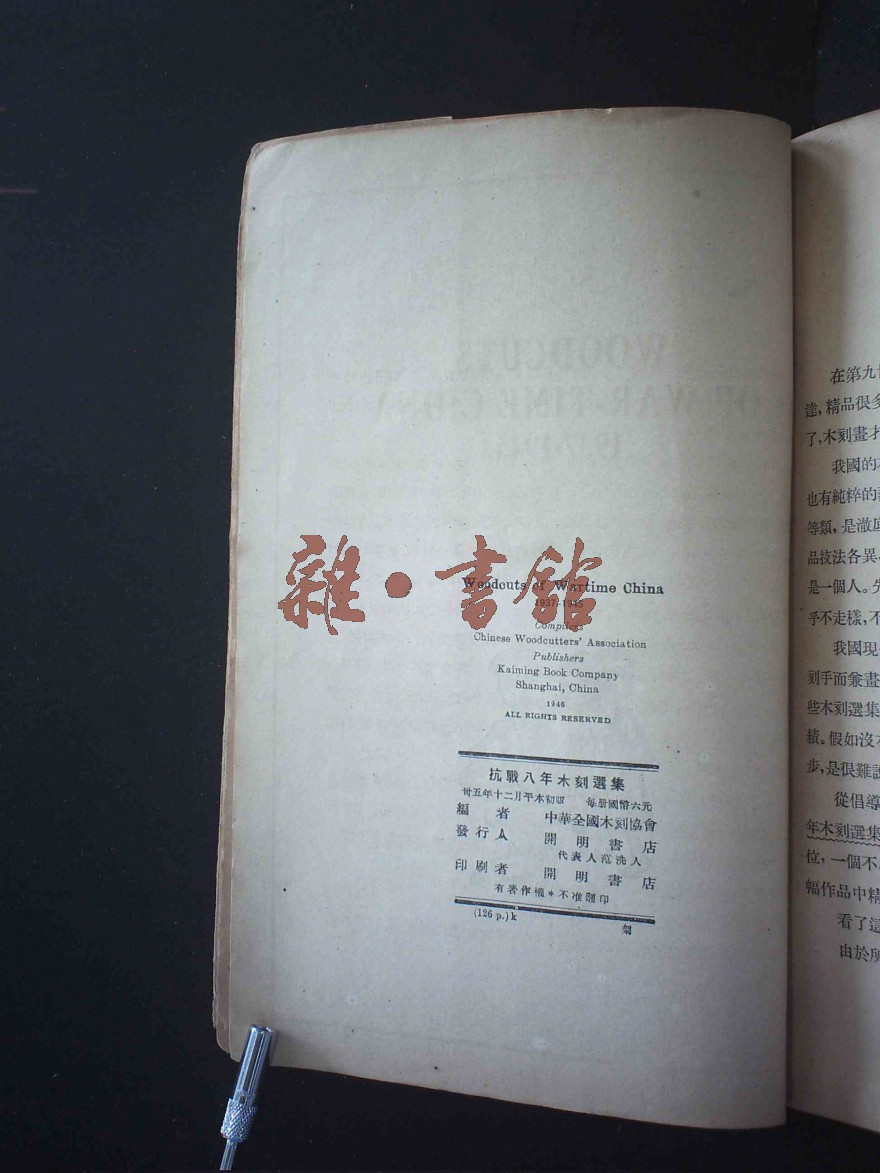 雜·書館
Woodcuts of Wartime China
1937-1945
Compilers
Chinese Woodcutters' Association
Publishers
Kaiming Book Company
Shanghai, China
1946
ALL RIGHTS RESERVED
抗戰八年木刻選集
卅五年十二月平本初版 每册國幣六元
編者 中華全國木刻協會
發行人 開明書店
代表人范洗人
印刷者 開明書店
有著作權*不准翻印
(126 p.) k
在第九
達,精品很多
了,木刻畫才
我國的
也有純粹的
等類,是澈底
品技法各異
是一個人。先
乎不走樣,不
我國現
刻手而兼畫
些木刻選集
績。假如沒
步,是很難
從倡導
年木刻選集
位,一個不
幅作品中精
看了這
由於所